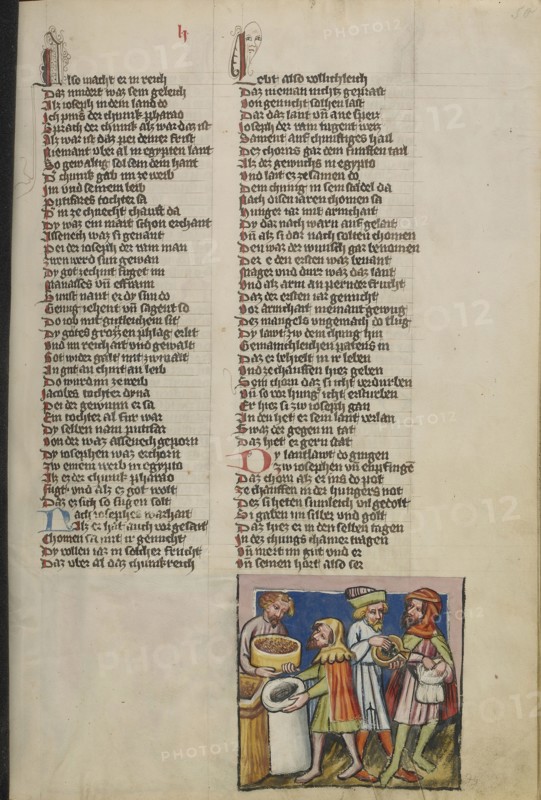 Also macht er in reich
Daz nindert waz sein geleich
Alz ioseph in dem land do
Ich pins der chunik pharao
Sprach der chunik alz war daz ist
Alz war ist daz pei deiner frist
Niemant vber al in egypten lant
So gewaltig sol sein dem hant
Dˢ chunik gab im ze weib
Im vnd seinem leib
Putifares tochter sa
Dˢ in ze chnecht chauft da
Dy waz ein mait schon erchant
Assenech waz si genant
Pei der ioseph der rain man
Zwen werd sun gewan
Dy got zechint fuget im
Manasses vn̄ effraim
Sunst nant er dy sun do
Genug iehent vn̄ sagent so
Do iob mit gutleichem sit
Dy gotes grozzen phlag erlit
Vnd im reichait vnd gewalt
Got wider galt mit zwivalt
An gut an chint an leib
Do wurd im ze weib
Jacobes tochter dyna
Pei der gewunn er sa
Ein tochter al fur war
Dy selben nam putifar
Von der waz assenech geporn
Dy iosephen waz erchorn
Zw einem weib in egypto
Alz er der chunik pharao
Fugt vnd alz ez got wolt
Daz er sich so fugen solt
Nach iosephes warhait
Alz er hat auch vor gesait
Chomen sa mit ir genucht
Dy vollen iar in solcher frucht
Daz vber al daz chunikreich
h
50
Lebt also vollichleich
Daz nieman nichtz geprast
Von genucht solhen last
Dar daz lant vn̄ ane speis
Joseph der rain tugent weis
Sament auf chunftiges hail
Der chorns gar den funften tail
Alz der gewuchs in egypto
Vnd lait ez zesamen do
Dem chunig in sein stadel da
Nach disen iaren chomen sa
Hunger iar mit armchait
Dy daz nach warn auf gelait
Vn̄ alz si dar nach solten chomen
Den waz der wunsch gar benomen
Der e den ersten waz benant
Mager vnd durr waz daz lant
Vnd alz arm an pernder frucht
Daz der ersten iar genucht
Vor armchait niemant gewug
Dez mangels vngemach do klug
Dy lawt zw dem chunig hin
Gemainchleichen patens in
Daz er behielt in ir leben
Vnd ze chauffen hiez geben
Sein chorn daz si icht verdurben
Vn̄ so vor hungˢ icht ersturben
Er hiez si zw ioseph gan
An den het er sein lant verlan
Swaz der gegen in tat
Daz hiet er gern stat
Dy lantlawt do gingen
Zw iosephen vn̄ enpfingē
Daz chorn alz er ins do pot
Ze chauffen in der hungers not
Dez si heten sumleich vil gedolt
Si gaben im silber vnd golt
Daz hiez er in den selben tagen
In dez chungs chamer tragen
Vn̄ mert im gut vnd er
Vn̄ seinen hort also ser